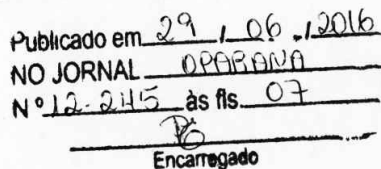 Publicado em 29 / 06 / 2016
NO JORNAL OPARANA
Nº 12-245 às fls. 07
Encarregado